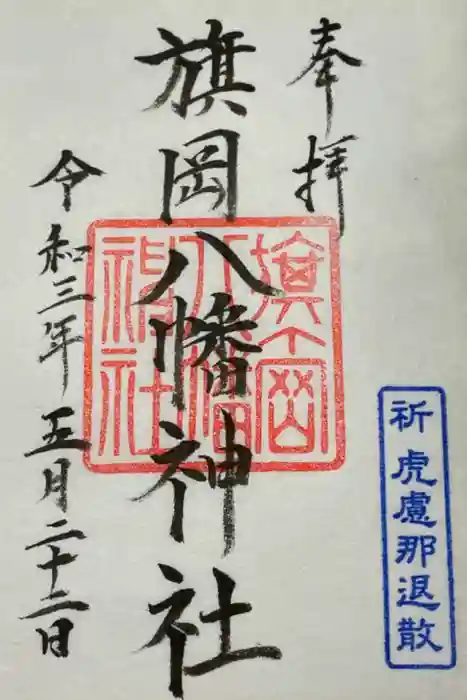 奉拝
祈虎慮那退散
旗岡八幡神社
旗岡八幡神社
令和三年五月二十二日